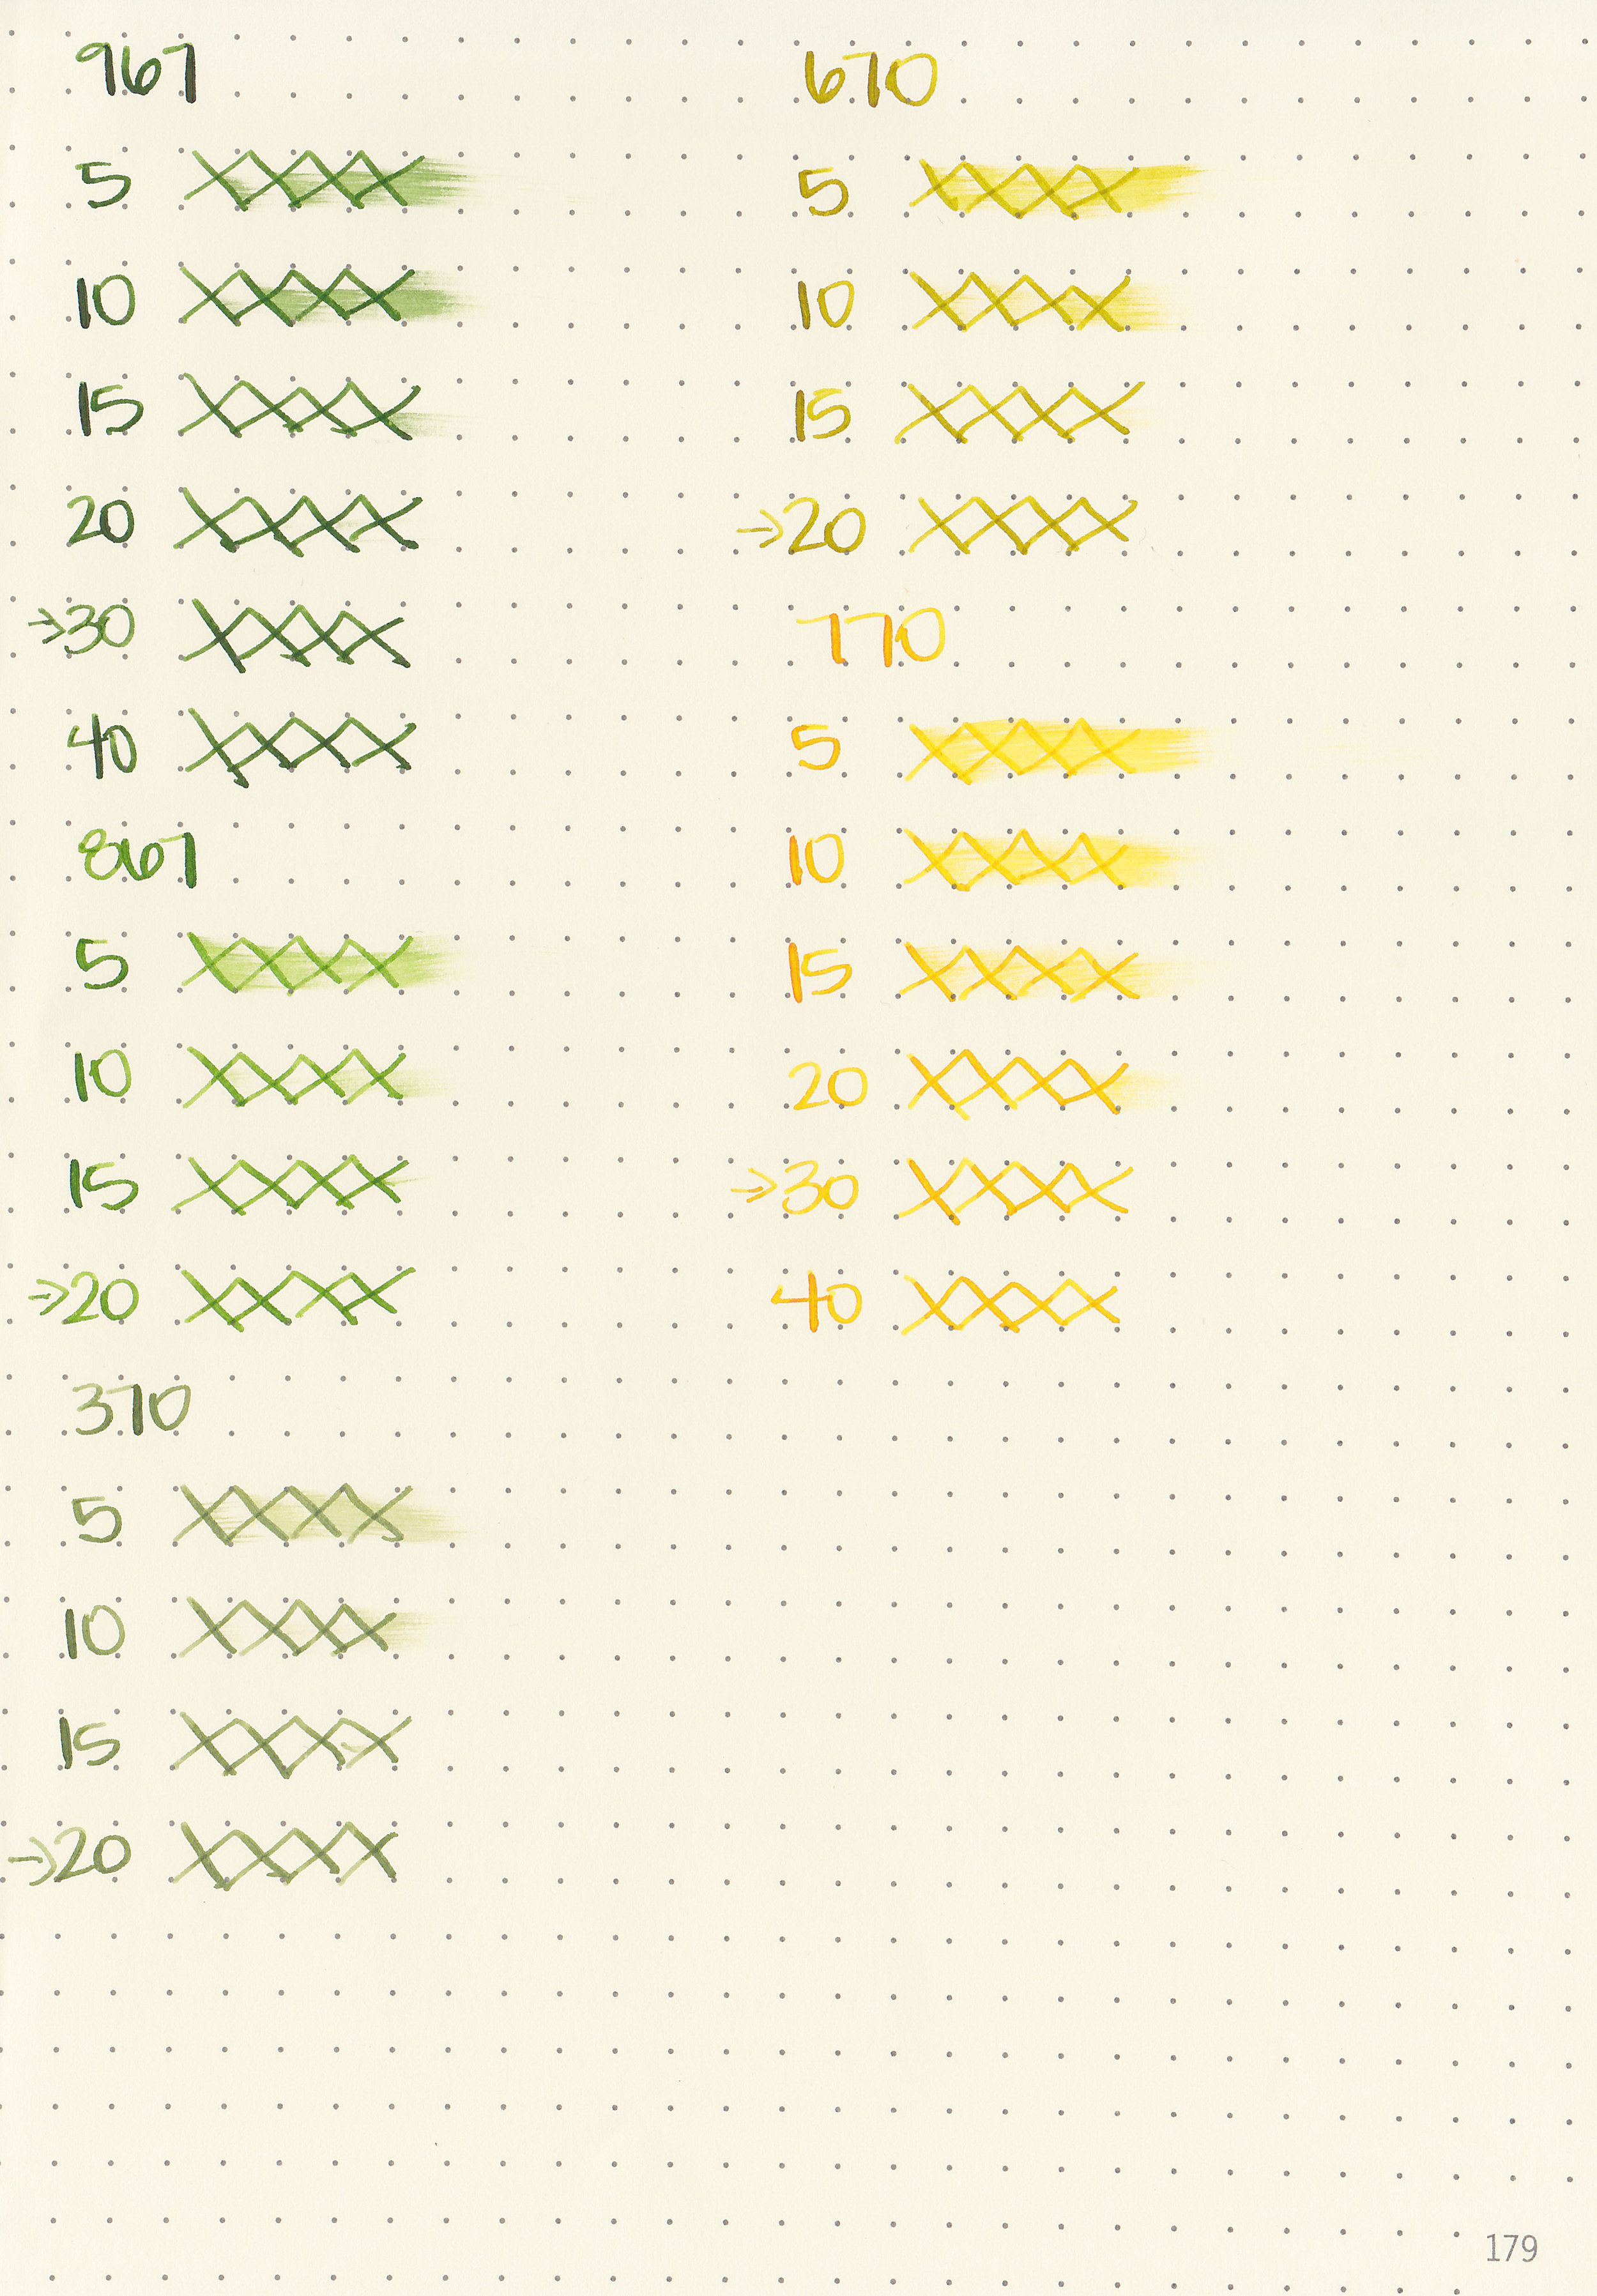 967
5 XXXX
10 XXXX
15 XXXX
20 XXXX
→30 XXXX
40 XXXX
867
5 XXXX
10 XXXX
15 XXXX
→20 XXXX
370
5 XXXX
10 XXXX
15 XXXX
→20 XXXX
670
5 XXXX
10 XXXX
15 XXXX
→20 XXXX
770
5 XXXX
10 XXXX
15 XXXX
20 XXXX
→30 XXXX
40 XXXX
179